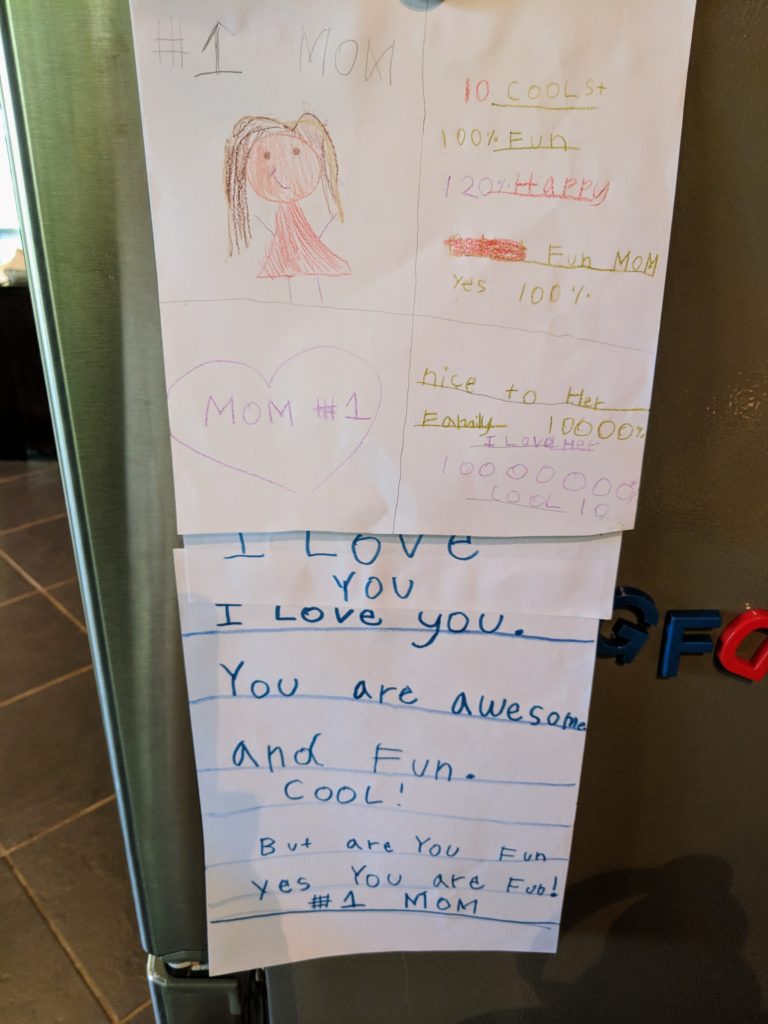 #1 MOM
10 COOLst
100% Fun
120% Happy
Fun MOM
Yes 100%
MOM #1
nice to Her
Family 10000%
I LOVE Her
10000000%
COOL 10
I LOVE
YOU
I Love you.
You are awesome
and Fun.
COOL!
But are You Fun
Yes You are Fun!
#1 MOM
GFQ